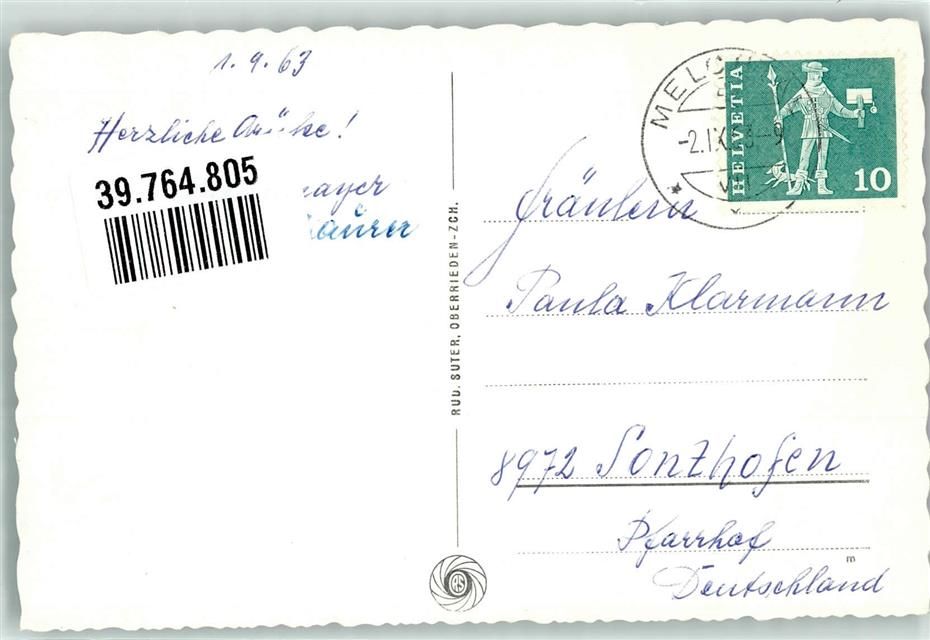 1.9.63
Herzliche Grüße!
39.764.805
ayer
aurer
RUD. SUTER, OBERRIEDEN-ZCH.
RS
MELC
-2.IX.63.-9
HELVETIA
10
Fräulein
Paula Klarmann
8972 Sonthofen
Pfarrhof
Deutschland
m